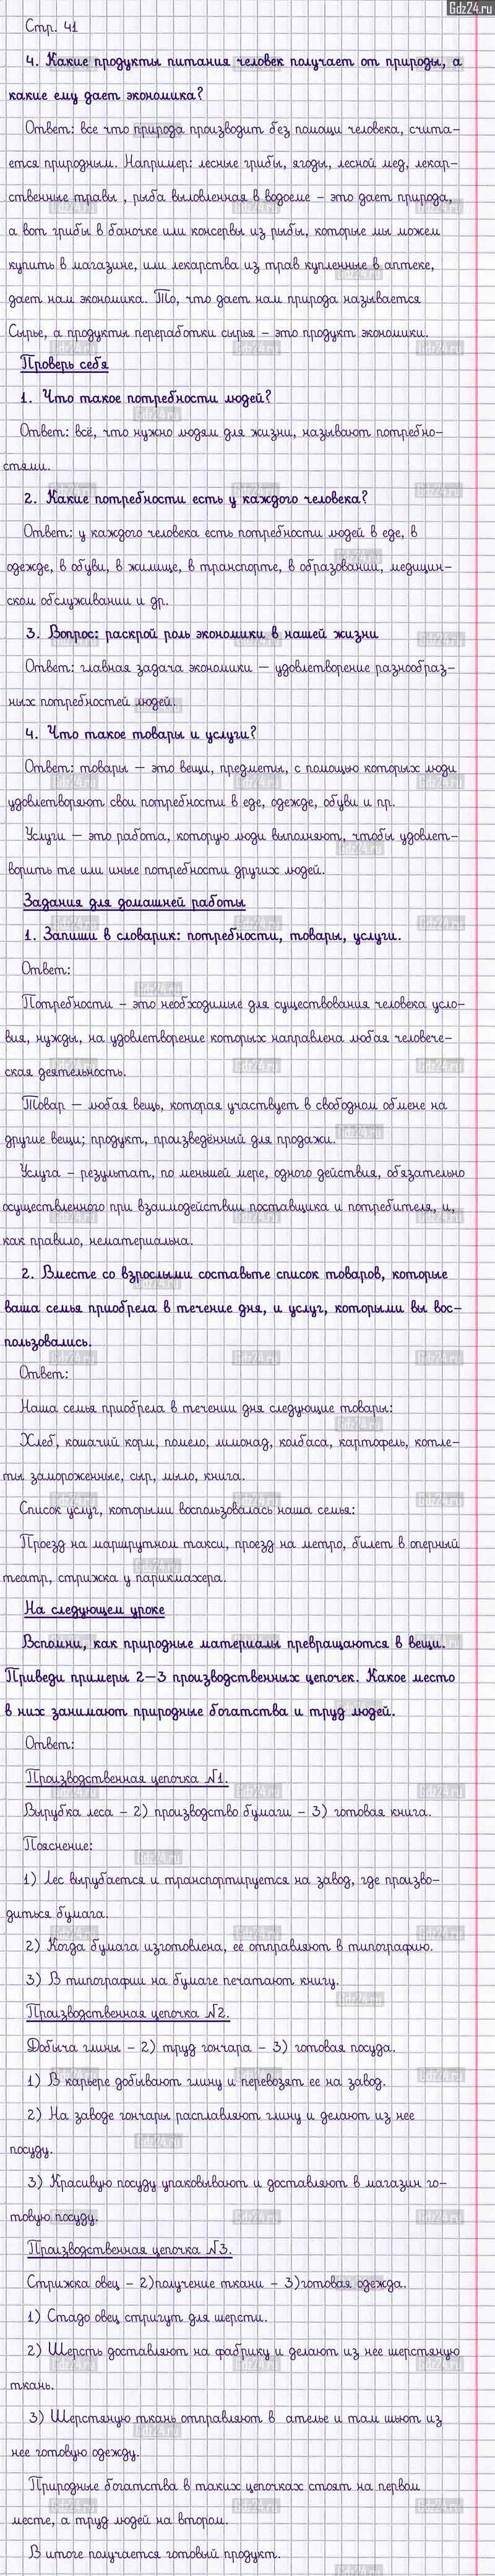 Gdz24.ru
Стр. 41
4. Какие продукты питания человек получает от природы, а
какие ему дает экономика?
Ответ: все что природа производит без помощи человека, счита-
ется природным. Например: лесные грибы, ягоды, лесной мед, лекар-
ственные травы , рыба выловленная в водоеме – это дает природа,
а вот грибы в баночке или консервы из рыбы, которые мы можем
купить в магазине, или лекарства из трав купленные в аптеке,
дает нам экономика. То, что дает нам природа называется
Сырье, а продукты переработки сырья – это продукт экономики.
Проверь себя
1. Что такое потребности людей?
Ответ: всё, что нужно людям для жизни, называют потребно-
стями.
2. Какие потребности есть у каждого человека?
Ответ: у каждого человека есть потребности людей в еде, в
одежде, в обуви, в жилище, в транспорте, в образовании, медицин-
ском обслуживании и др.
3. Вопрос: раскрой роль экономики в нашей жизни
Ответ: главная задача экономики — удовлетворение разнообраз-
ных потребностей людей.
4. Что такое товары и услуги?
Ответ: товары — это вещи, предметы, с помощью которых люди
удовлетворяют свои потребности в еде, одежде, обуви и пр.
Услуги — это работа, которую люди выполняют, чтобы удовлет-
ворить те или иные потребности других людей.
Задания для домашней работы
1. Запиши в словарик: потребности, товары, услуги.
Ответ:
Потребности – это необходимые для существования человека усло-
вия, нужды, на удовлетворение которых направлена любая человече-
ская деятельность.
Товар — любая вещь, которая участвует в свободном обмене на
другие вещи; продукт, произведённый для продажи.
Услуга – результат, по меньшей мере, одного действия, обязательно
осуществленного при взаимодействии поставщика и потребителя, и,
как правило, нематериальна.
2. Вместе со взрослыми составьте список товаров, которые
ваша семья приобрела в течение дня, и услуг, которыми вы вос-
пользовались.
Ответ:
Наша семья приобрела в течении дня следующие товары:
Хлеб, кошачий корм, помело, лимонад, колбаса, картофель, котле-
ты замороженные, сыр, мыло, книга.
Список услуг, которыми воспользовалась наша семья:
Проезд на маршрутном такси, проезд на метро, билет в оперный
театр, стрижка у парикмахера.
На следующем уроке
Вспомни, как природные материалы превращаются в вещи.
Приведи примеры 2—3 производственных цепочек. Какое место
в них занимают природные богатства и труд людей.
Ответ:
Производственная цепочка №1.
Вырубка леса – 2) производство бумаги – 3) готовая книга.
Пояснение:
1) Лес вырубается и транспортируется на завод, где произво-
диться бумага.
2) Когда бумага изготовлена, ее отправляют в типографию.
3) В типографии на бумаге печатают книгу.
Производственная цепочка №2.
Добыча глины – 2) труд гончара – 3) готовая посуда.
1) В карьере добывают глину и перевозят ее на завод.
2) На заводе гончары расплавляют глину и делают из нее
посуду.
3) Красивую посуду упаковывают и доставляют в магазин го-
товую посуду.
Производственная цепочка №3.
Стрижка овец – 2)получение ткани – 3)готовая одежда.
1) Стадо овец стригут для шерсти.
2) Шерсть доставляют на фабрику и делают из нее шерстяную
ткань.
3) Шерстяную ткань отправляют в ателье и там шьют из
нее готовую одежду.
Природные богатства в таких цепочках стоят на первом
месте, а труд людей на втором.
В итоге получается готовый продукт.